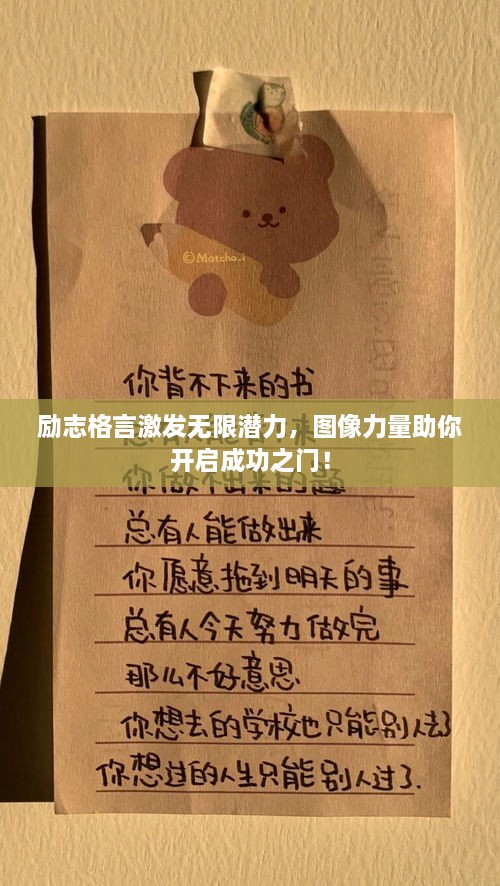 ©Matcha_i
你背不下来的书
励志格言激发无限潜力，图像力量助你
开启成功之门！
你做不出来的题
总有人能做出来
你愿意拖到明天的事
总有人今天努力做完
那么不好意思
你想去的学校也只能别人去了
你想过的人生只能别人过了.